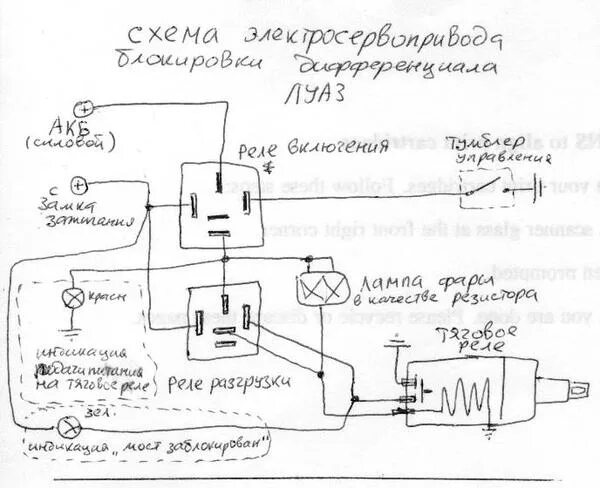 схема электросервопривода
блокировки дифференциала
ЛУАЗ
АКБ
(силовой)
Реле включения
Тумблер
управления
с
Замка
зажигания
ns to al
e your
cartridges. Follow these steps:
scanner glass at the front right corner
n prompted
you are done. Please recycle or discard the
красн
Лампа фары
в качестве резистора
тяговое
реле
индикация
подачи питания
на тяговое реле
Реле разгрузки
зел.
индикация „мост заблокирован"